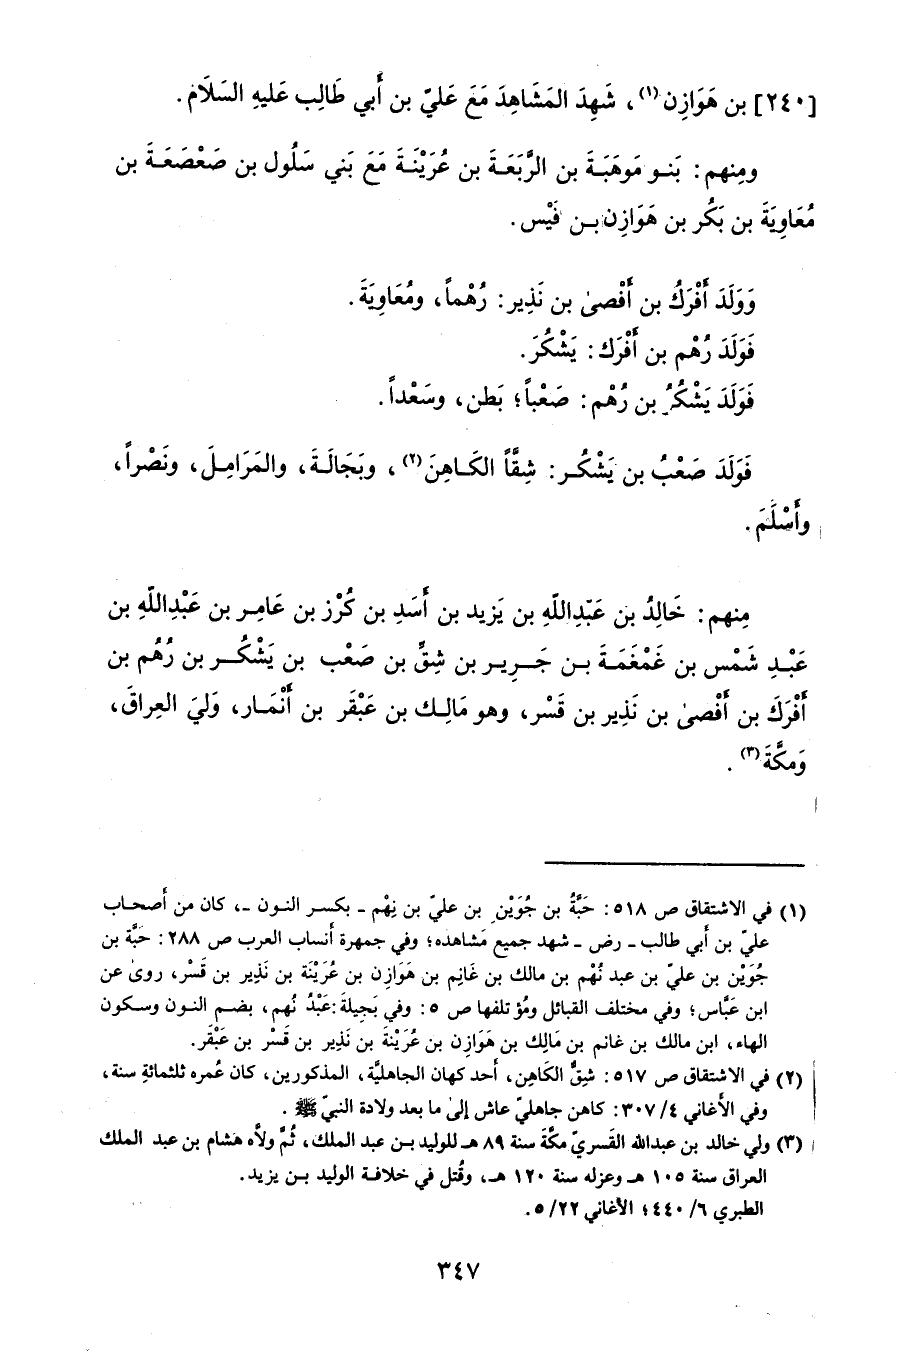 [٢٤٠] بن هَوَازِن(١)، شَهِدَ المَشَاهِدَ مَعَ عَليّ بن أَبي طَالِب عَليهِ السَلَام.
ومِنهم: بَنو مَوهَبَةَ بن الرَّبَعَةَ بن عُرَيْنَةَ مَعَ بَني سَلُول بن صَعْصَعَةَ بن
مُعَاوِيَةَ بن بَكُر بن هَوَازِن بن قَيْس.
وَوَلَدَ أَفْرَكُ بن أَفْصىٰ بن نَذِير: رُهْماً، ومُعَاوِيَةَ.
فَوَلَدَ رُهْم بن أَفْرَك: يَشْكُرَ.
فَوَلَدَ يَشْكُرُ بن رُهْم: صَعْباً؛ بَطن، وسَعْداً.
فَوَلَدَ صَعْبُ بن يَشْكُر: شِقَّاً الكَاهِنَ(٢)، وبَجَالَةَ، والمَرَامِلَ، ونَصْراً،
وأَسْلَمَ.
مِنهم: خَالِدُ بن عَبْدِاللّهِ بن يَزِيد بن أَسَدِ بن كُرْز بن عَامِر بن عَبْدِاللّهِ بن
عَبْدِ شَمْس بن غَمْغَمَةَ بن جَرِير بن شِقِّ بن صَعْب بن يَشْكُر بن رُهُم بن
أَفْرَك بن أَفْصىٰ بن نَذِير بن قَسْر، وهو مَالِك بن عَبْقَر بن أَنْمَار، وَليَ العِراقَ،
وَمكَّةَ(٣).
(١) في الاشتقاق ص ٥١٨: حَبَّةُ بن جُوَيْنِ بن عليّ بن نِهْم - بكسر النون -، كان من أصحاب
عليّ بن أبي طالب - رض - شهد جميع مَشاهده؛ وفي جمهرة أنساب العرب ص ٢٨٨: حَبَّة بن
جُوَيْن بن عليّ بن عبد نُهْم بن مالك بن غَانِم بن هَوَازن بن عُرَيْنَة بن نَذِير بن قَسْر، روىٰ عن
ابن عَبَّاس؛ وفي مختلف القبائل ومُؤتلفها ص ٥: وفي بَجِيلَة: عَبْدُ نُهم، بضم النون وسكون
الهاء، ابن مالك بن غانم بن مَالِك بن هَوَازِن بن عُرَيْنَة بن نَذِير بن قَسْر بن عَبْقَر.
(٢) في الاشتقاق ص ٥١٧: شِقُّ الكَاهِن، أحد كهان الجاهليَّة، المذكورين، كان عُمره ثلثمائةِ سنة،
وفي الأغاني ٤/ ٣٠٧: كاهن جاهليّ عاش إلىٰ ما بعد ولادة النبيّ ﷺ.
(٣) ولي خالد بن عبدالله القَسريّ مكَّةَ سنة ٨٩ هـ للوليد بن عبد الملك، ثُمَّ ولأه هَشام بن عبد الملك
العراق سنة ١٠٥ هـ وعزله سنة ١٢٠ هـ، وقُتل في خلافة الوليد بن يزيد.
الطبري ٦/ ٤٤٠؛ الأغاني ٢٢/ ٥.
٣٤٧